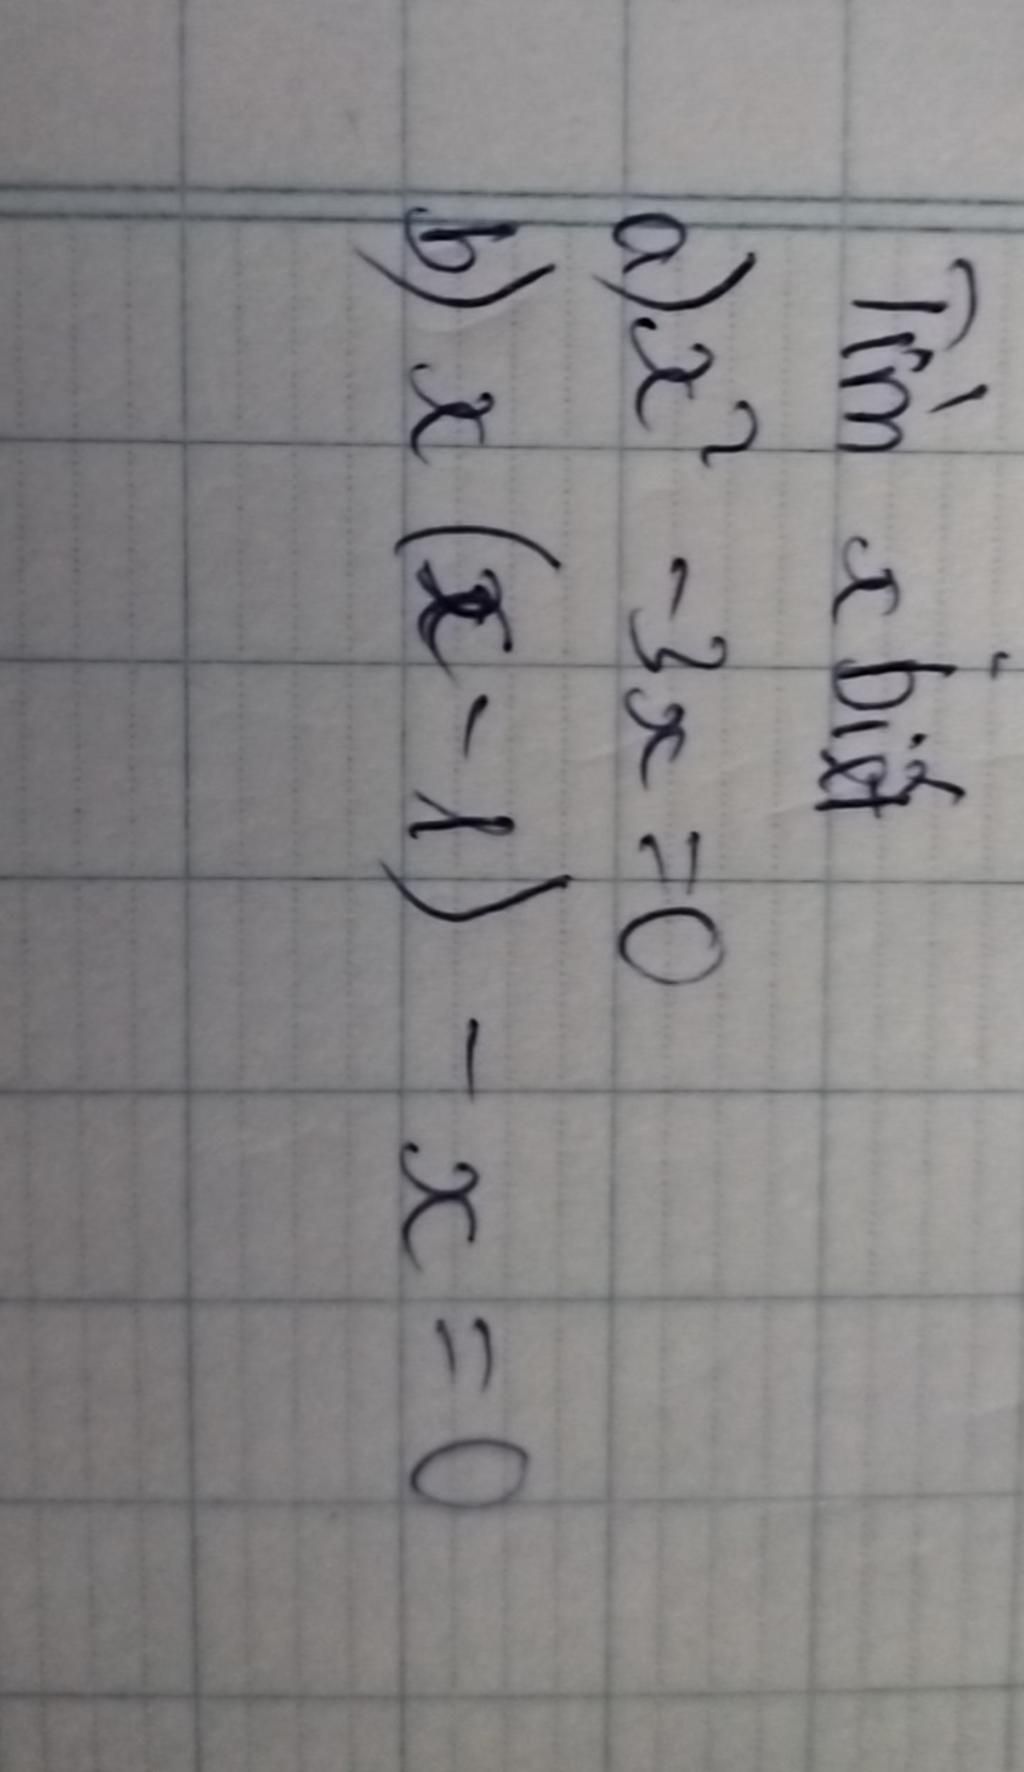 Tìm x biết
a) x² - 3x = 0
b) x (x - 1) - x = 0